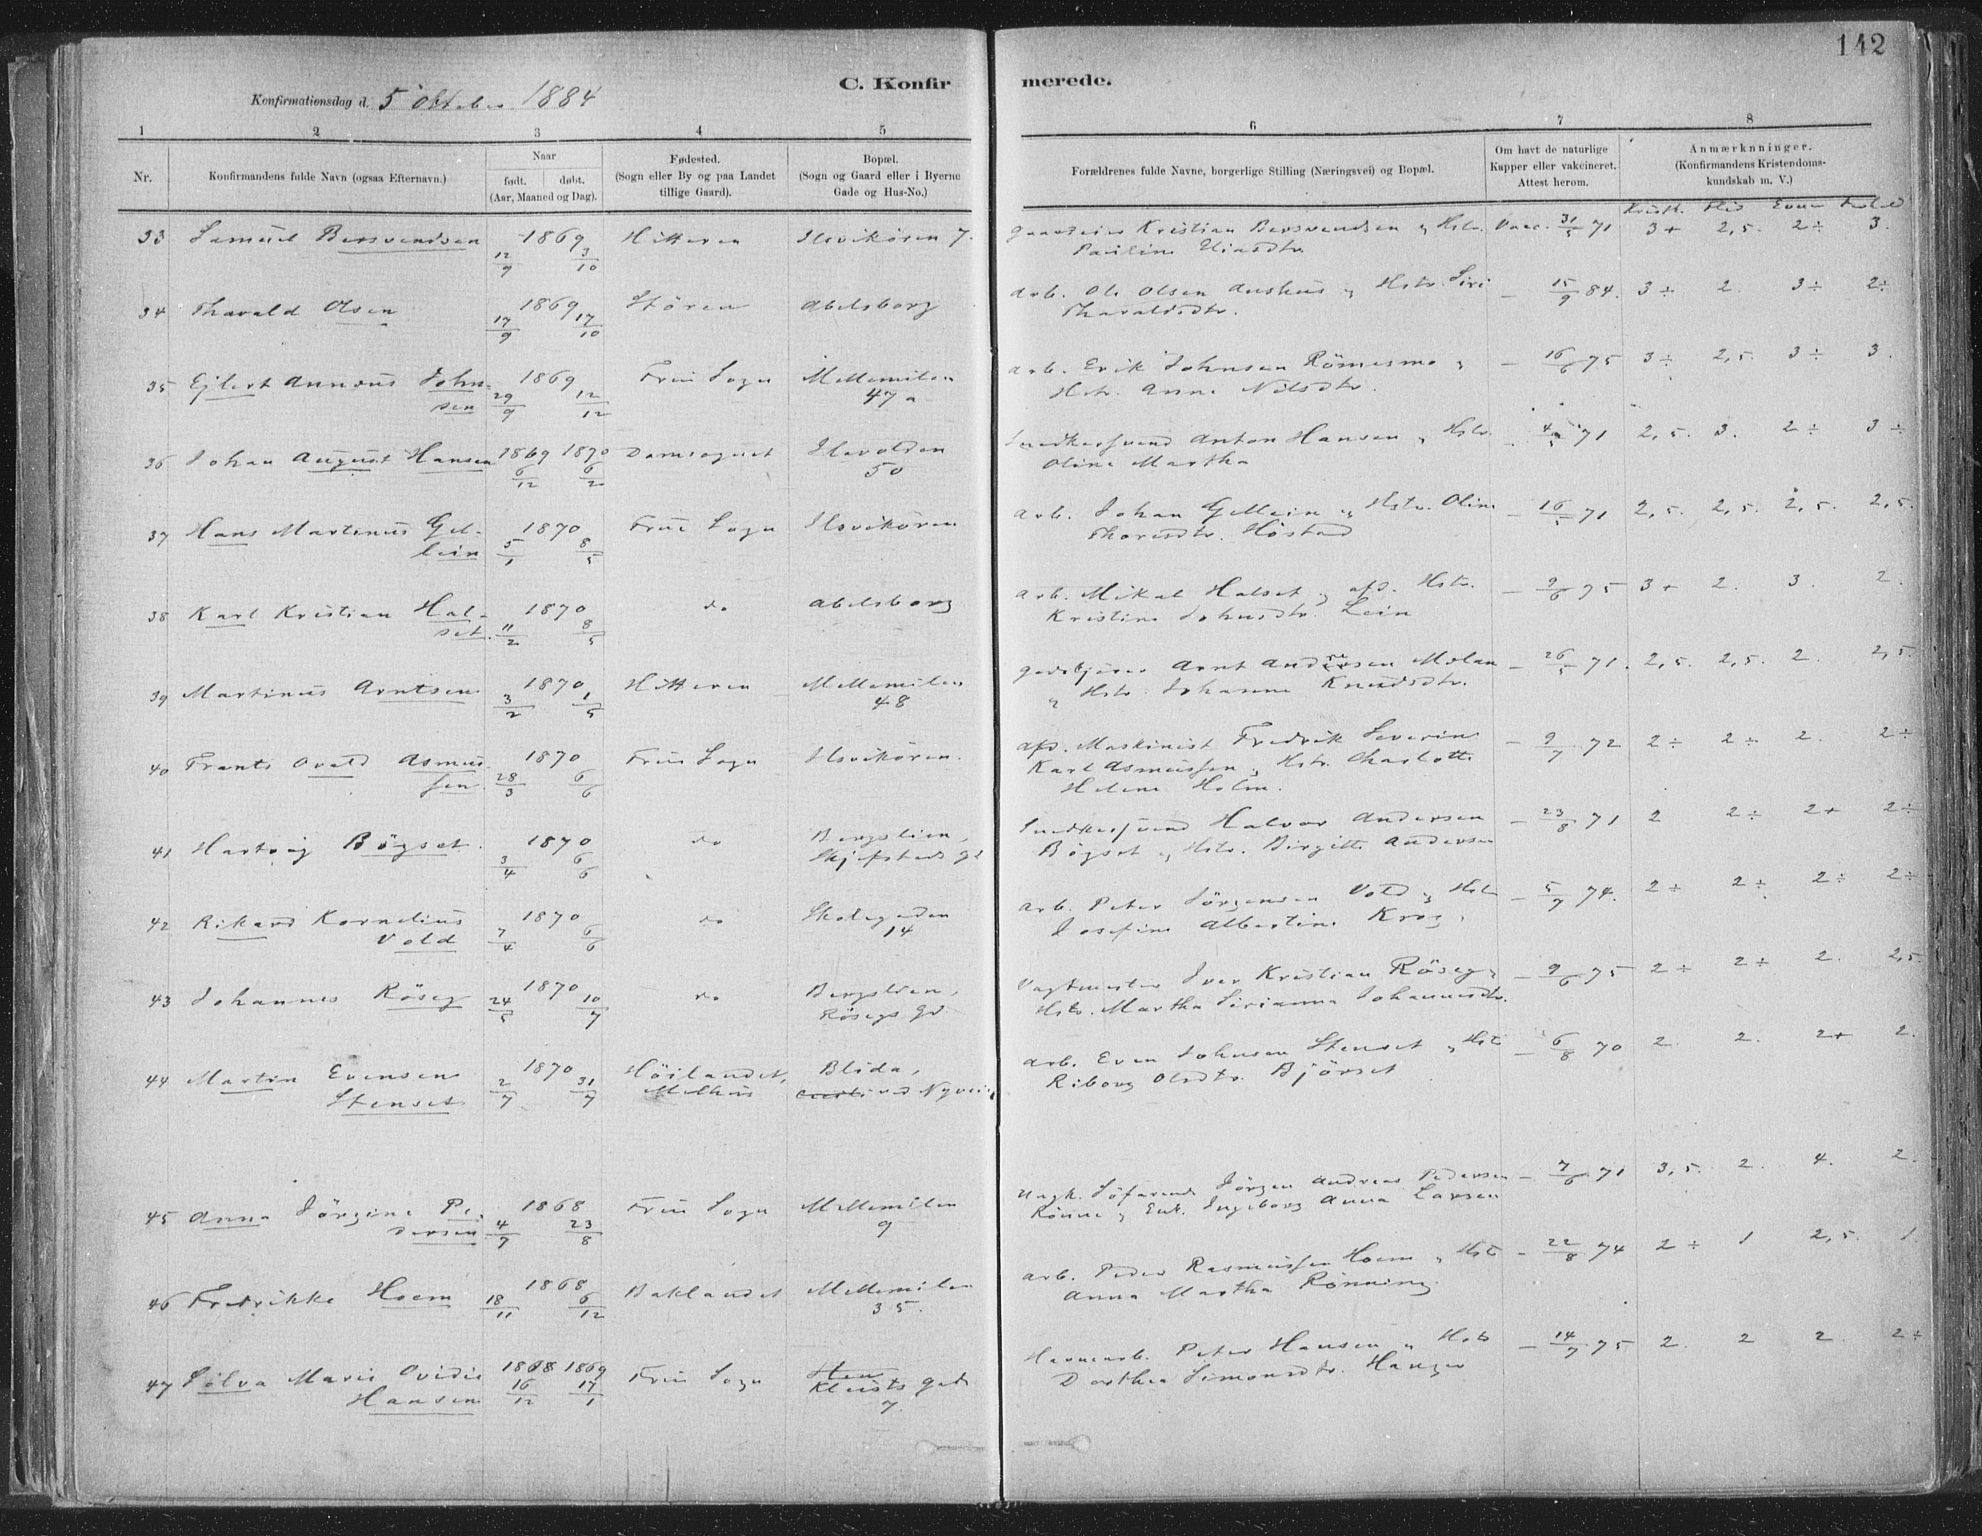 142
C. Konfir merede.
Konfirmationsdag d. 5 Oktober 1884
1 2 3 4 5 6 7 8
Nr.
Konfirmandens fulde Navn (ogsaa Efternavn.)
Naar
født. døbt.
(Aar, Maaned og Dag).
Fødested.
(Sogn eller By og paa Landet
tillige Gaard).
Bopæl.
(Sogn og Gaard eller i Byerne
Gade og Hus-No.)
Forældrenes fulde Navne, borgerlige Stilling (Næringsvei) og Bopæl.
Om havt de naturlige
Kapper eller vakcineret.
Attest herom.
Anmærknninger.
(Konfirmandens Kristendoms-
kundskab m. V.)
Kristk. Flid Evner Forhold
33 Samuel Bersvendsen 1869 12/9 3/10 Hitteren Ilsvikören 7. Gaardeier Kristian Bersvendsen " Hstr. Vacc. 31/5 71 3+ 2,5. 2÷ 3.
Pauline Eliasdtr
34 Thorvald Olsen 1869 17/9 17/10 Stören Abelsborg arb. Ole Olsen Aushus " Hstr. Siri — 15/9 84. 3÷ 2. 3÷ 2÷
Thoraldsdtr.
35 Ejlert Annæus John- 1869 29/9 12/12 Frue Sogn Mellemilen arb. Erik Johnsen Römesmo " — 16/6 75 3÷ 2,5. 3÷ 3.
sen 47a Hstr. Anne Nilsdtr.
36 Johan August Hansen 1869 6/12 1870 6/2 Domsognet Ilevolden Snedkersvend Anton Hansen " Hstr. 4/5 71 2,5. 3. 2÷ 3÷
50 Oline Martha
37 Hans Martinus Gel- 1870 5/1 8/5 Frue Sogn Ilsvikören arb. Johan Gellein " Hstr. Oline — 16/5 71 2,5. 2,5. 2,5. 2,5.
lein Thoresdtr. Höstad
38 Karl Kristian Hal- 1870 11/2 8/5 do Abelsborg arb. Mikal Halset " afd. Hstr. — 9/6 75 3+ 2. 3. 2.
set. Kristine Johnsdtr. Lein
39 Martinus Arntsen 1870 3/2 1/5 Hitteren Mellemilen Arnt Andersen Melan — 26/5 71. 2,5. 2,5. 2. 2,5
48 " Hstr. Johanne Knudsdtr.
40 Frants Ovald Asmus- 1870 28/3 6/6 Frue Sogn Ilsvikören. afd. Maskinist Fredrik Severin — 9/7 72 2÷ 2÷ 2. 2÷
sen Karl Asmussen " Hstr. Charlotte
Helene Holm.
41 Hartvig Bögset. 1870 3/4 6/6 do Bergslien, Snedkersvend Halvor Andersen — 23/8 71 2 2÷ 2+ 2÷
Skjefsteds gd Bögset " Hstr. Birgitte Andersen
42 Rikard Kornelius 1870 7/4 6/6 do Skolegaden arb. Peter Jörgensen Vold " Hstr — 5/7 74. 2÷ 2÷ 2÷ 2÷
Vold 14 Josefine Albertine Krog.
43 Johannes Röseg 1870 24/5 10/7 do Bergslien, Vagtmester Iver Kristian Röseg " — 9/6 75 2÷ 2÷ 2. 2,5.
Rösegs gd Hstr. Martha Sirianna Johannesdtr.
44 Martin Evensen 1870 2/7 31/7 Höilandet, Blida, arb. Even Johnsen Stenset " Hst — 6/8 70 2. 2. 2+ 2.
Stenset Melhus ved Nyvei Riborg Olsdtr. Björset
45 Anna Jörgine Pe- 1868 4/7 23/8 Frue Sogn Mellemilen Ungk. Söfarende Jörgen Andreas Pedersen — 7/6 71 3,5. 2. 4. 2.
dersen 9 Rönne " Enk. Ingeborg Anna Larsen
46 Fredrikke Hoem 1868 18/11 6/12 Baklandet Mellemilen arb. Peder Rasmussen Hoem " Hst — 22/8 74 2÷ 1 2,5. 1.
35. Anna Martha Rönning.
47 Sölva Marie Ovidie 1868 16/12 1869 17/1 Frue Sogn Havnearb. Peter Hansen " Hstr — 14/7 75 2. 2 2. 2÷
Hansen Kleists gade 7. Dorthea Simonsdtr. Hanger